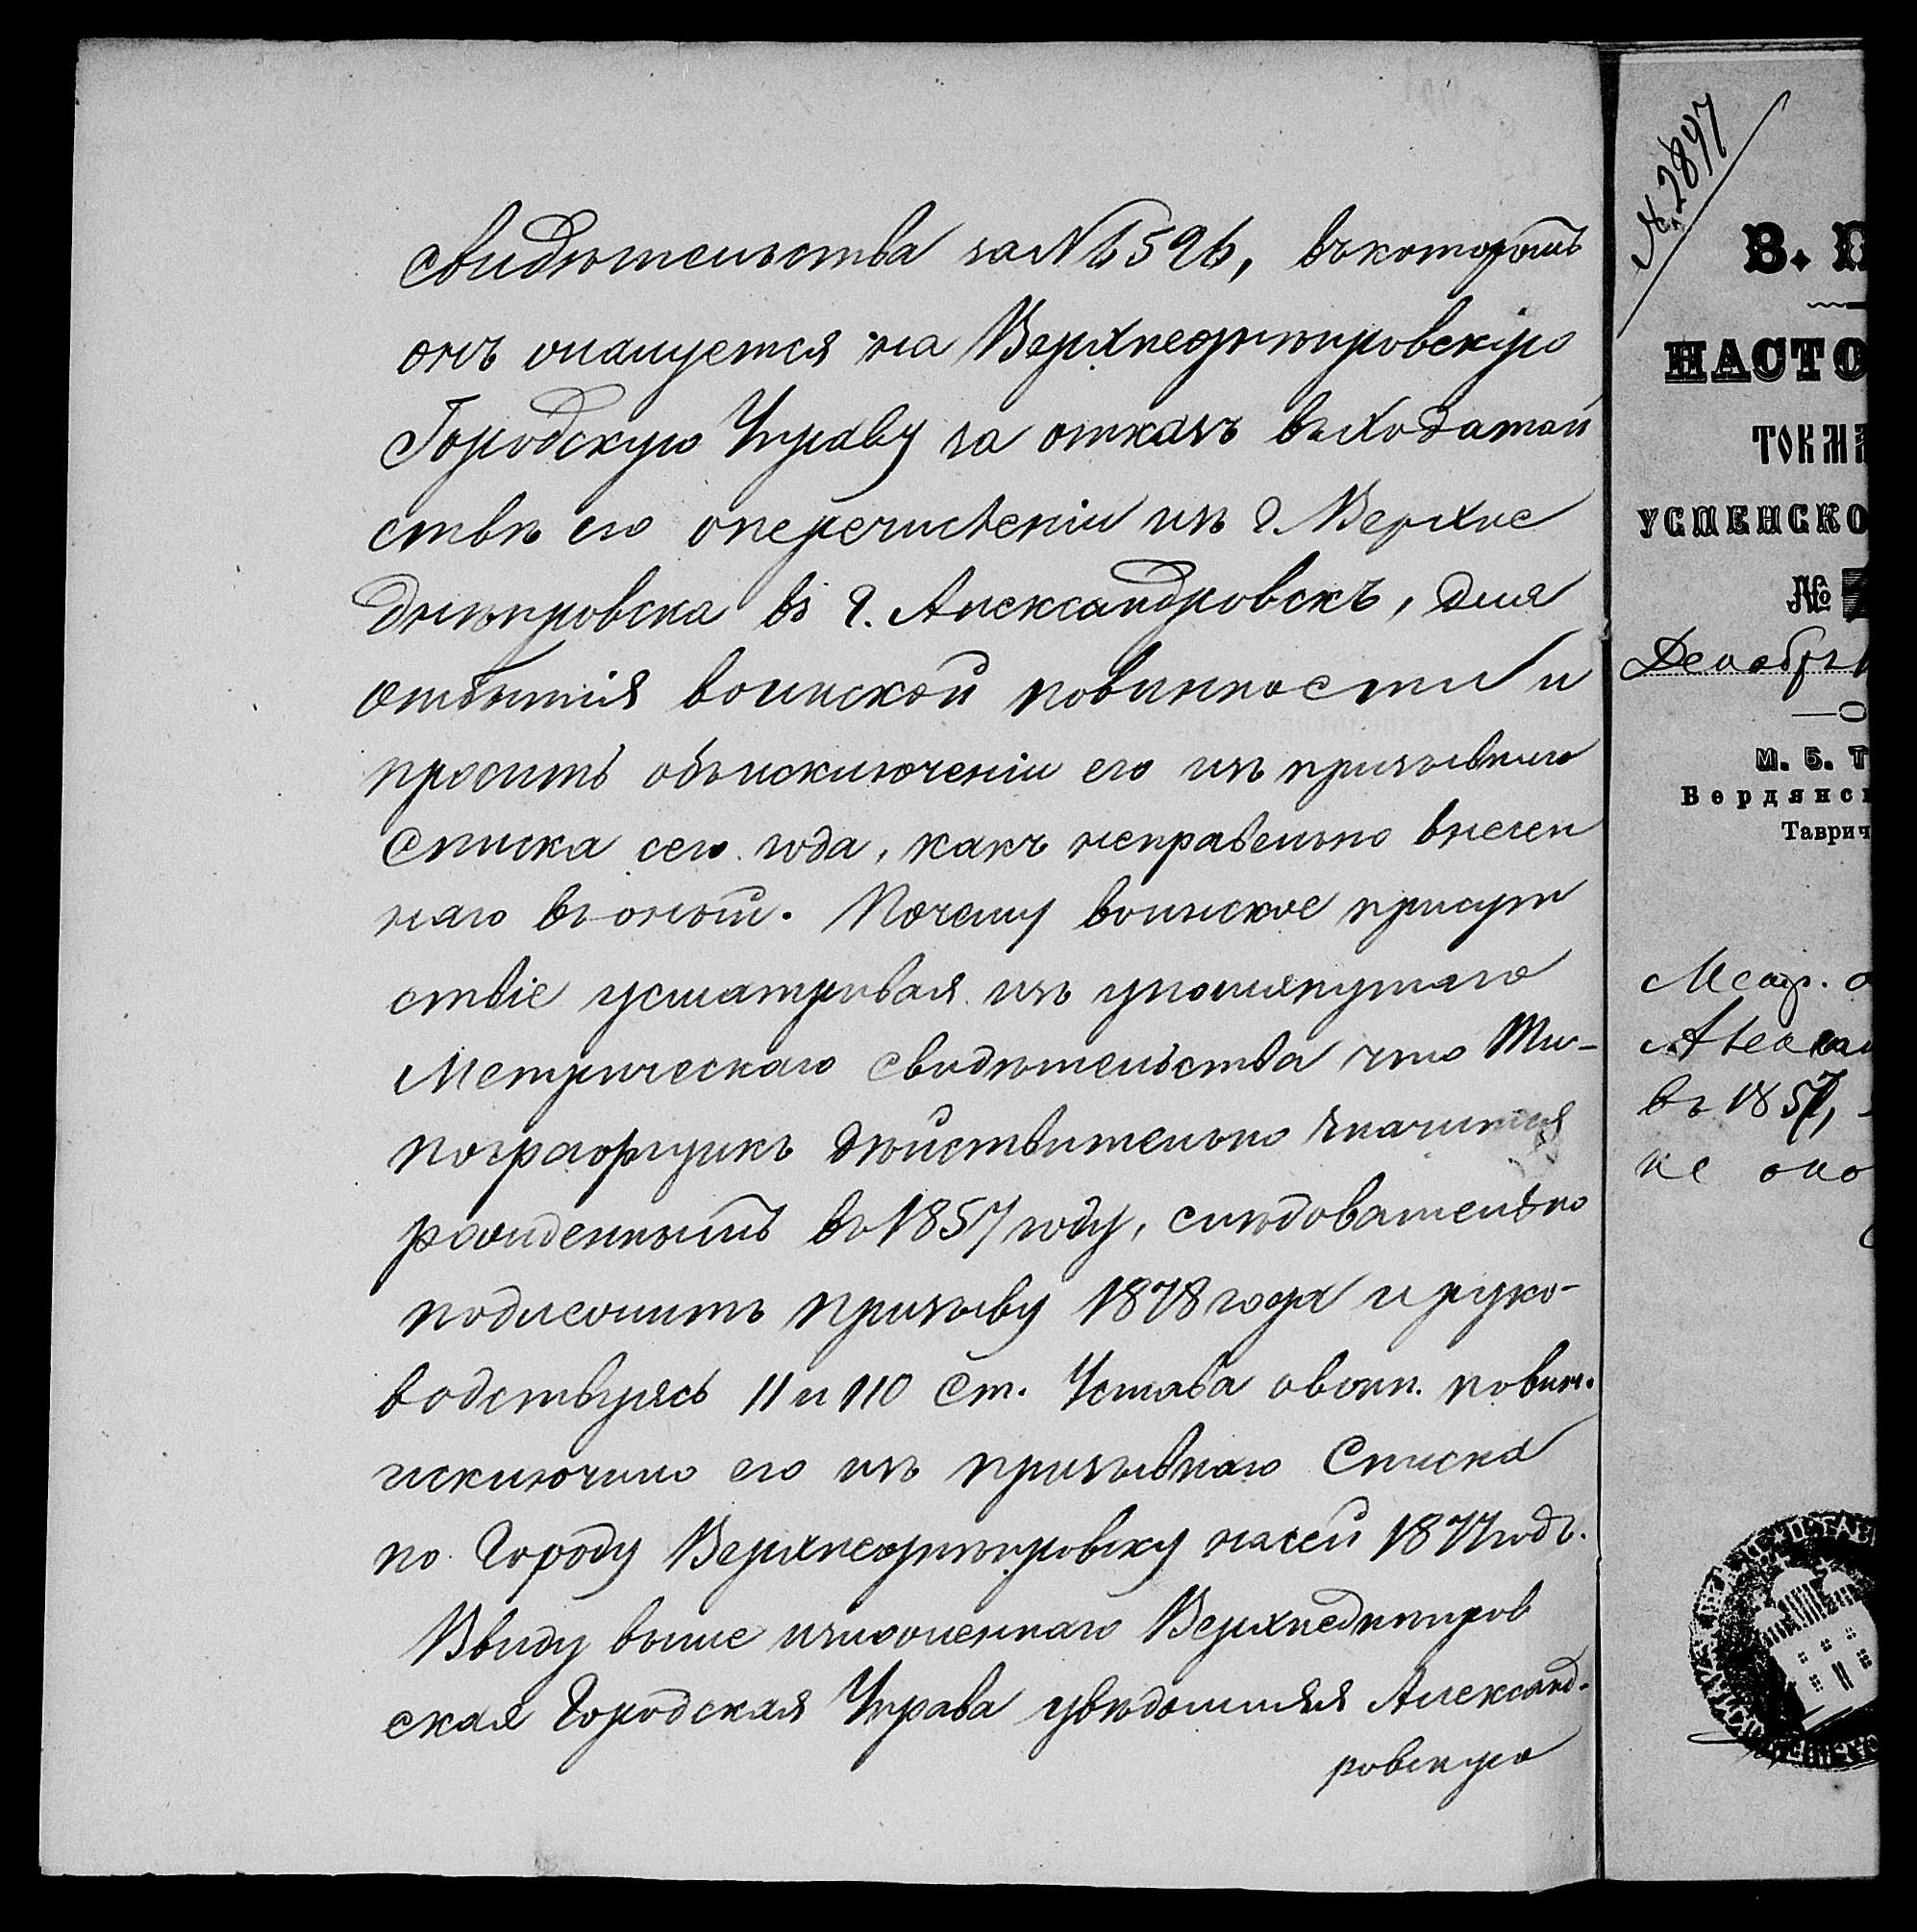 свидѣтельства за № 6596, въ которомъ
онъ жалуется на Верхнеднѣпровскую
Городскую Управу за отказъ въ ходатай
ствѣ его о перечисленіи изъ г. Верхне
днѣпровска въ г. Александровскъ, для
отбытія воинской повинности и
проситъ объ исключеніи его изъ призывнаго
списка сего года, какъ неправельно внесен
наго въ оный. Почему воинское присут
ствіе усматривая изъ упомянутаго
Метрическаго свидѣтельства что Ти-
пографщикъ дѣйствительно значится
рожденнымъ въ 1857 году, слѣдовательно
подлежитъ призыву 1878 года и руко-
водствуясь 11 и 110 ст. Устава о воин. повин.
исключило его изъ призывнаго Списка
по Городу Верхнеднѣпровску на сей 1877 годъ.
Ввиду выше изложеннаго Верхнеднѣпров
ская Городская Управа увѣдомляя Александ-
ровскую
№ 2897
В. П
НАСТО
ТОКМА
УСПЕНСКО
№
Декабря
М. Б. Т
Бердянск
Таврич
въ 1857,
не око